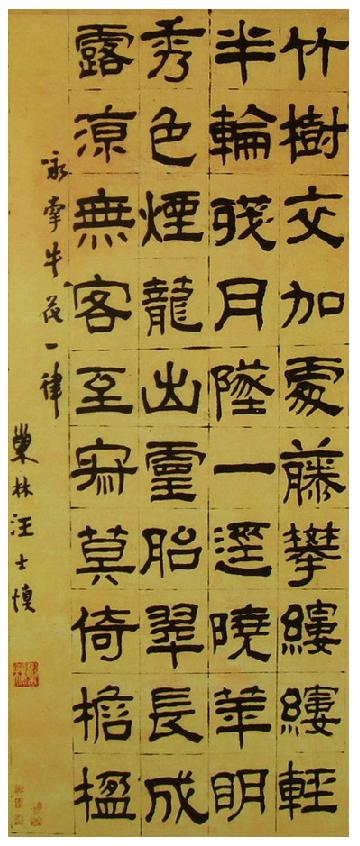 竹樹交加處藤攀縷縷輕
半輪殘月墜一逕曉華明
秀色煙籠出靈胎翠長成
露涼無客至寂莫倚檐楹
咏牽牛花一律
巢林汪士慎